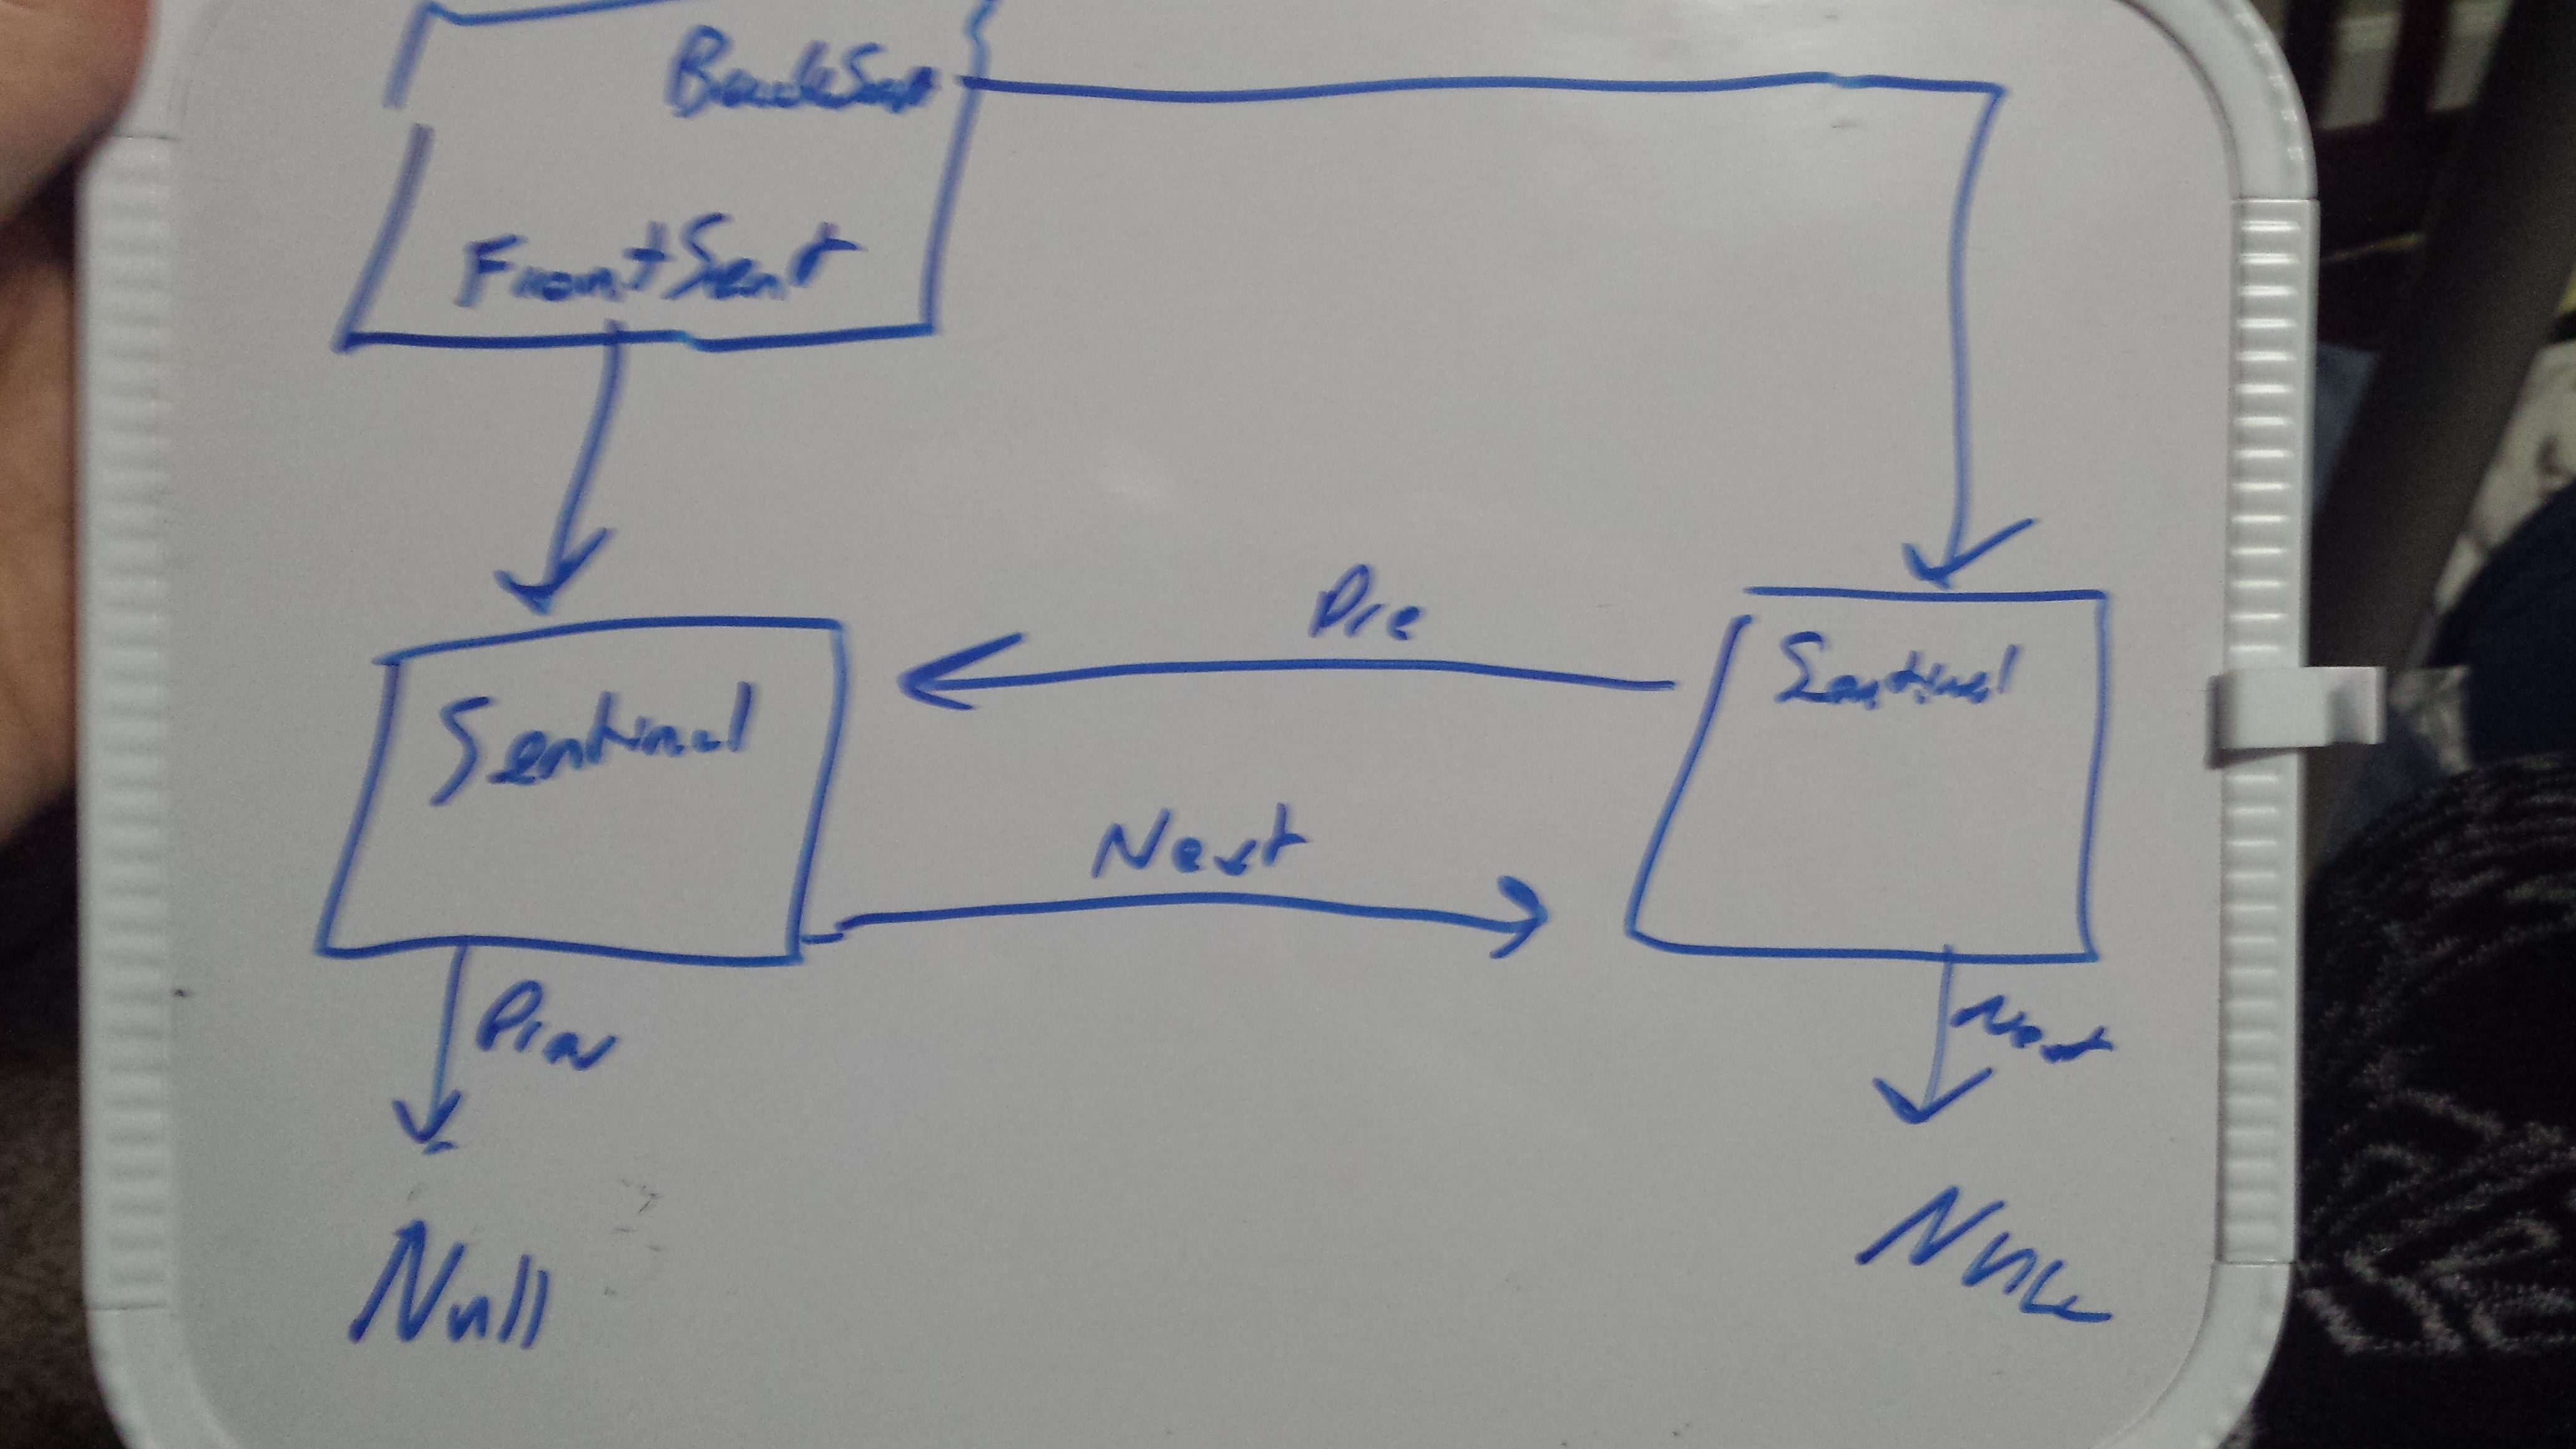 BackSent
FrontSent
Pre
Sentinal
Sentinel
Next
Prev
Next
Null
Null